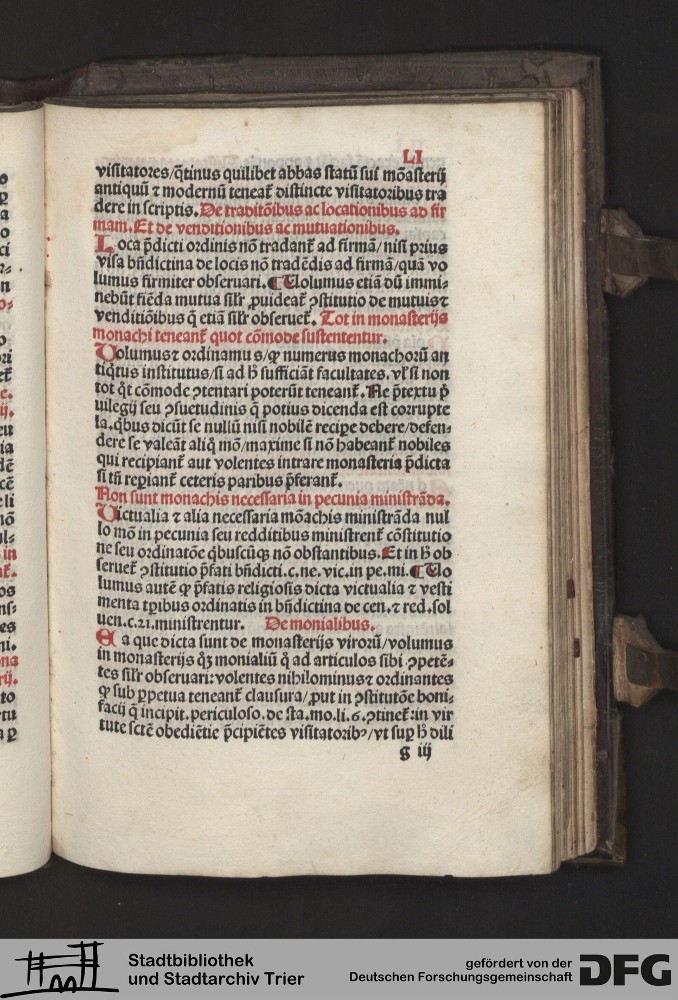 LI
visitatores/q̄tinus quilibet abbas statū sui mōasterij
antiquū ⁊ modernū teneat᷑ distincte visitatoribus tra
dere in scriptis. De traditōibus ac locationibus ad fir
mam. Et de venditionibus ac mutuationibus.
Loca p̄dicti ordinis nō tradant᷑ ad firmā/nisi prius
visa bn̄dictina de locis nō tradēdis ad firmā/quā vo
lumus firmiter obseruari. ¶ Uolumus etiā dū immi-
nebūt fiēda mutua silr̄ ꝓuideat᷑ ꝯstitutio de mutuis ⁊
venditiōibus q̄ etiā silr̄ obseruet᷑. Tot in monasterijs
monachi teneant᷑ quot cōmode sustententur.
Uolumus ⁊ ordinamu s/ꝙ numerus monachorū an
tiq̄tus institutus/si ad h̄ sufficiāt facultates. vl̓ si non
tot q̄t cōmode ꝯtentari poterūt teneant᷑. Ne p̄textu p̄
uilegij seu ꝯsuetudinis q̄ potius dicenda est corrupte
la. q̄bus dicūt se nullū nisi nobilē recip̲e debere/defen-
dere se valeāt aliq̄ mō/maxime si nō habeant᷑ nobiles
qui recipiant᷑ aut volentes intrare monasteria p̄dicta
si tn̄ repiant᷑ ceteris paribus p̄ferant᷑.
Non sunt monachis necessaria in pecunia ministrāda.
Uictualia ⁊ alia necessaria mōachis ministrāda nul
lo mō in pecunia seu redditibus ministrent᷑ cōstitutio
ne seu ordinatōe q̄buscūꝙ nō obstantibus. Et in h̄ ob
seruet᷑ ꝯstitutio p̄fati bn̄dicti. c. ne. vic. in pe. mi. ¶ Uo
lumus autē ꝙ p̄fatis religiosis dicta victualia ⁊ vesti
menta tp̄ibus ordinatis in bn̄dictina de cen. ⁊ red. sol
uen. c. 21. ministrentur. De monialibus.
Ea que dicta sunt de monasterijs virorū/volumus
in monasterijs qꝫ monialiū q̄ ad articulos sibi ꝯpetē-
tes silr̄ obseruari: volentes nihilominus ⁊ ordinantes
ꝙ sub ꝑpetua teneant᷑ clausura/ꝓut in ꝯstitutōe boni-
facij q̄ incipit. periculoso. de sta. mo. li. 6. ꝯtinet᷑: in vir
tute sctē obediētie p̄cipiētes visitatoribꝰ/vt suꝑ h̄ dili
g iij
Stadtbibliothek
und Stadtarchiv Trier
gefördert von der
Deutschen Forschungsgemeinschaft
DFG